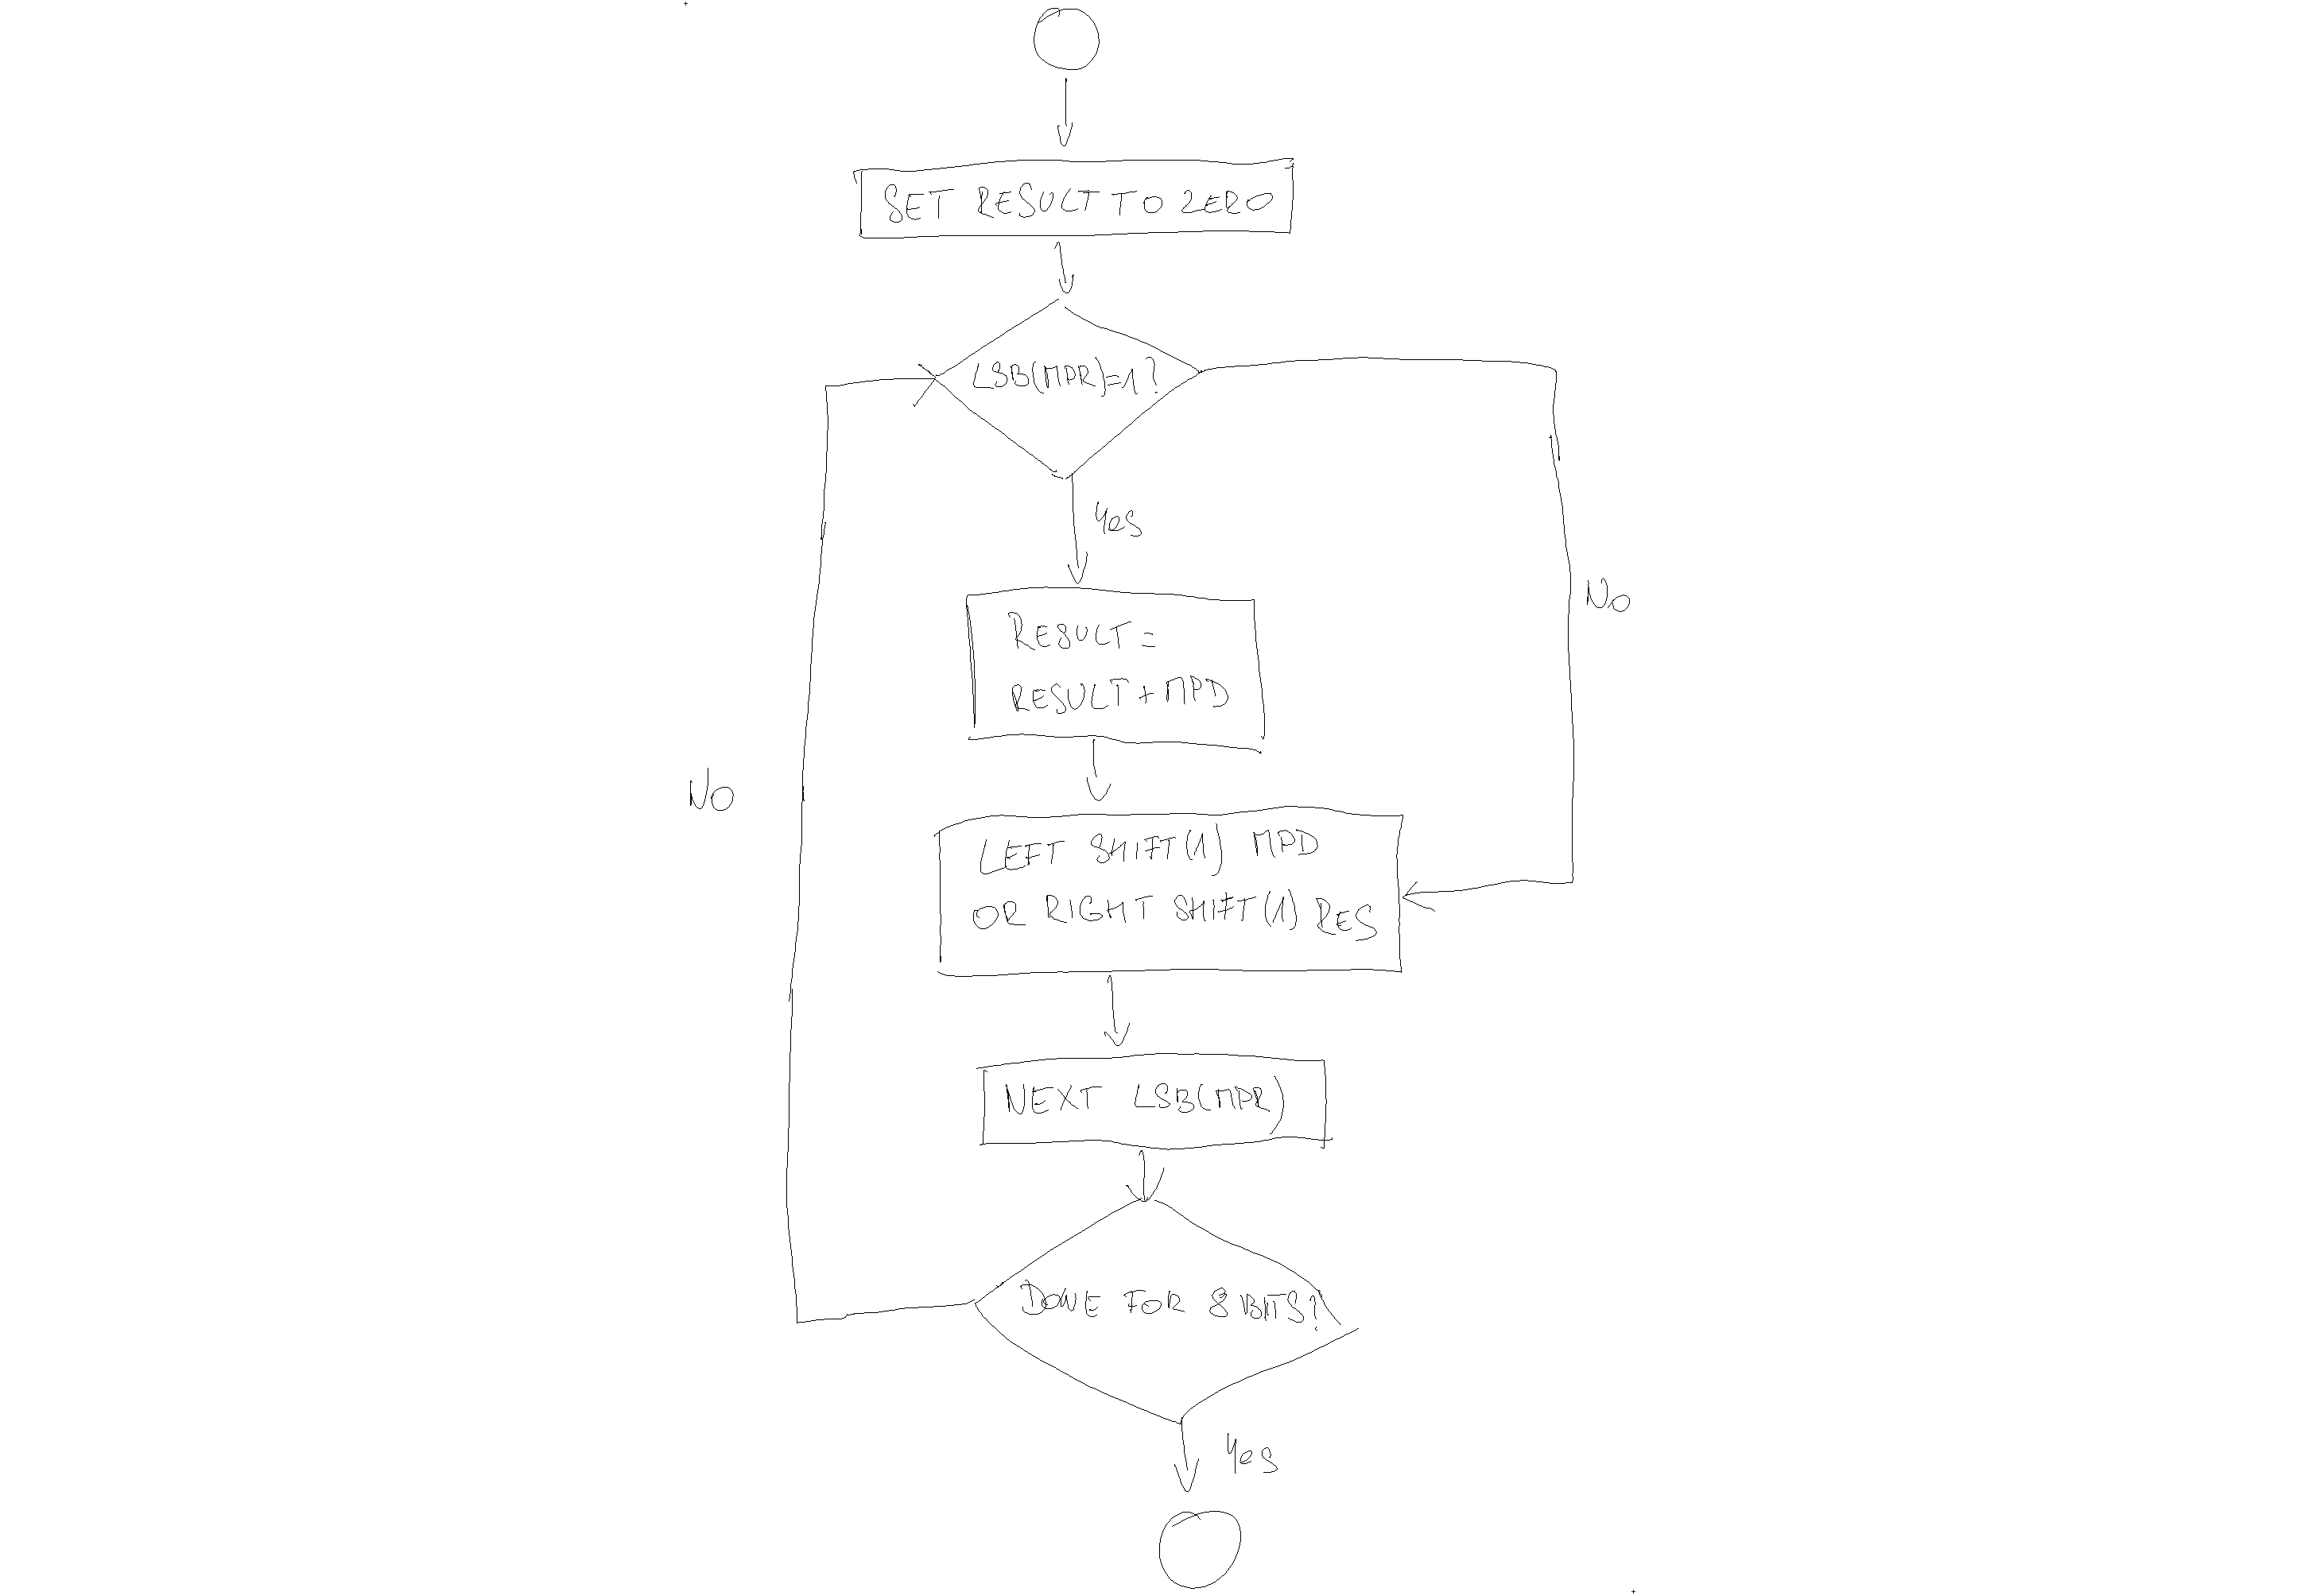 SET RESULT TO ZERO
LSB(MPR)=1?
Yes
No
RESULT=
RESULT+MPD
No
LEFT SHIFT(1) MPD
OR RIGHT SHIFT(1) RES
NEXT LSB(MPR)
DONE FOR 8 BITS?
Yes